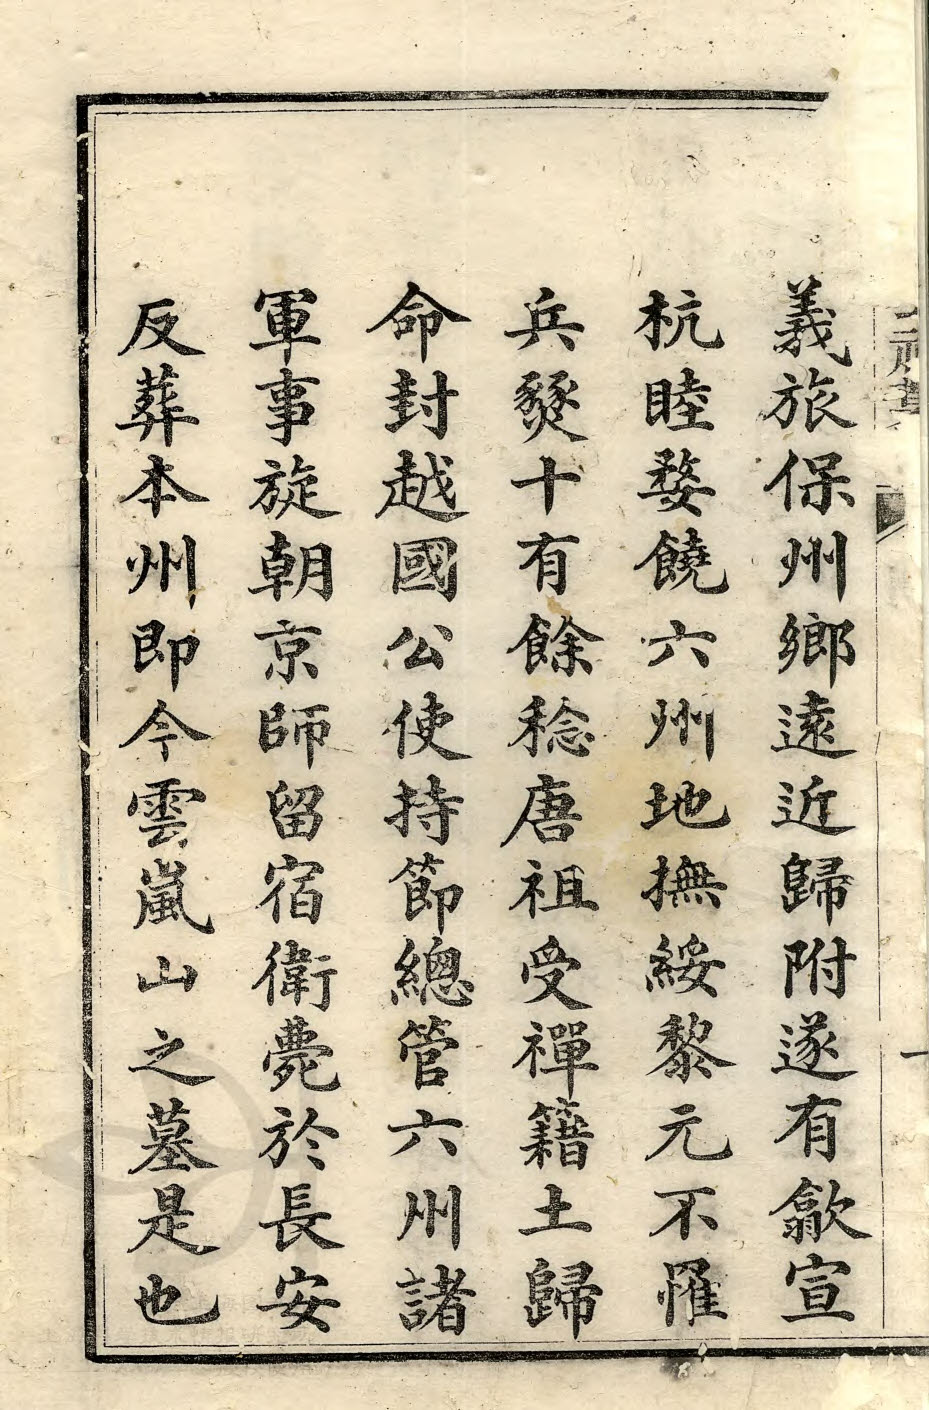 義旅保州鄉遠近歸附遂有歙宣
杭睦婺饒六州地撫綏黎元不罹
兵燹十有餘稔唐祖受禪籍土歸
命封越國公使持節總管六州諸
軍事旋朝京師留宿衛薨於長安
反葬本州即今雲嵐山之墓是也